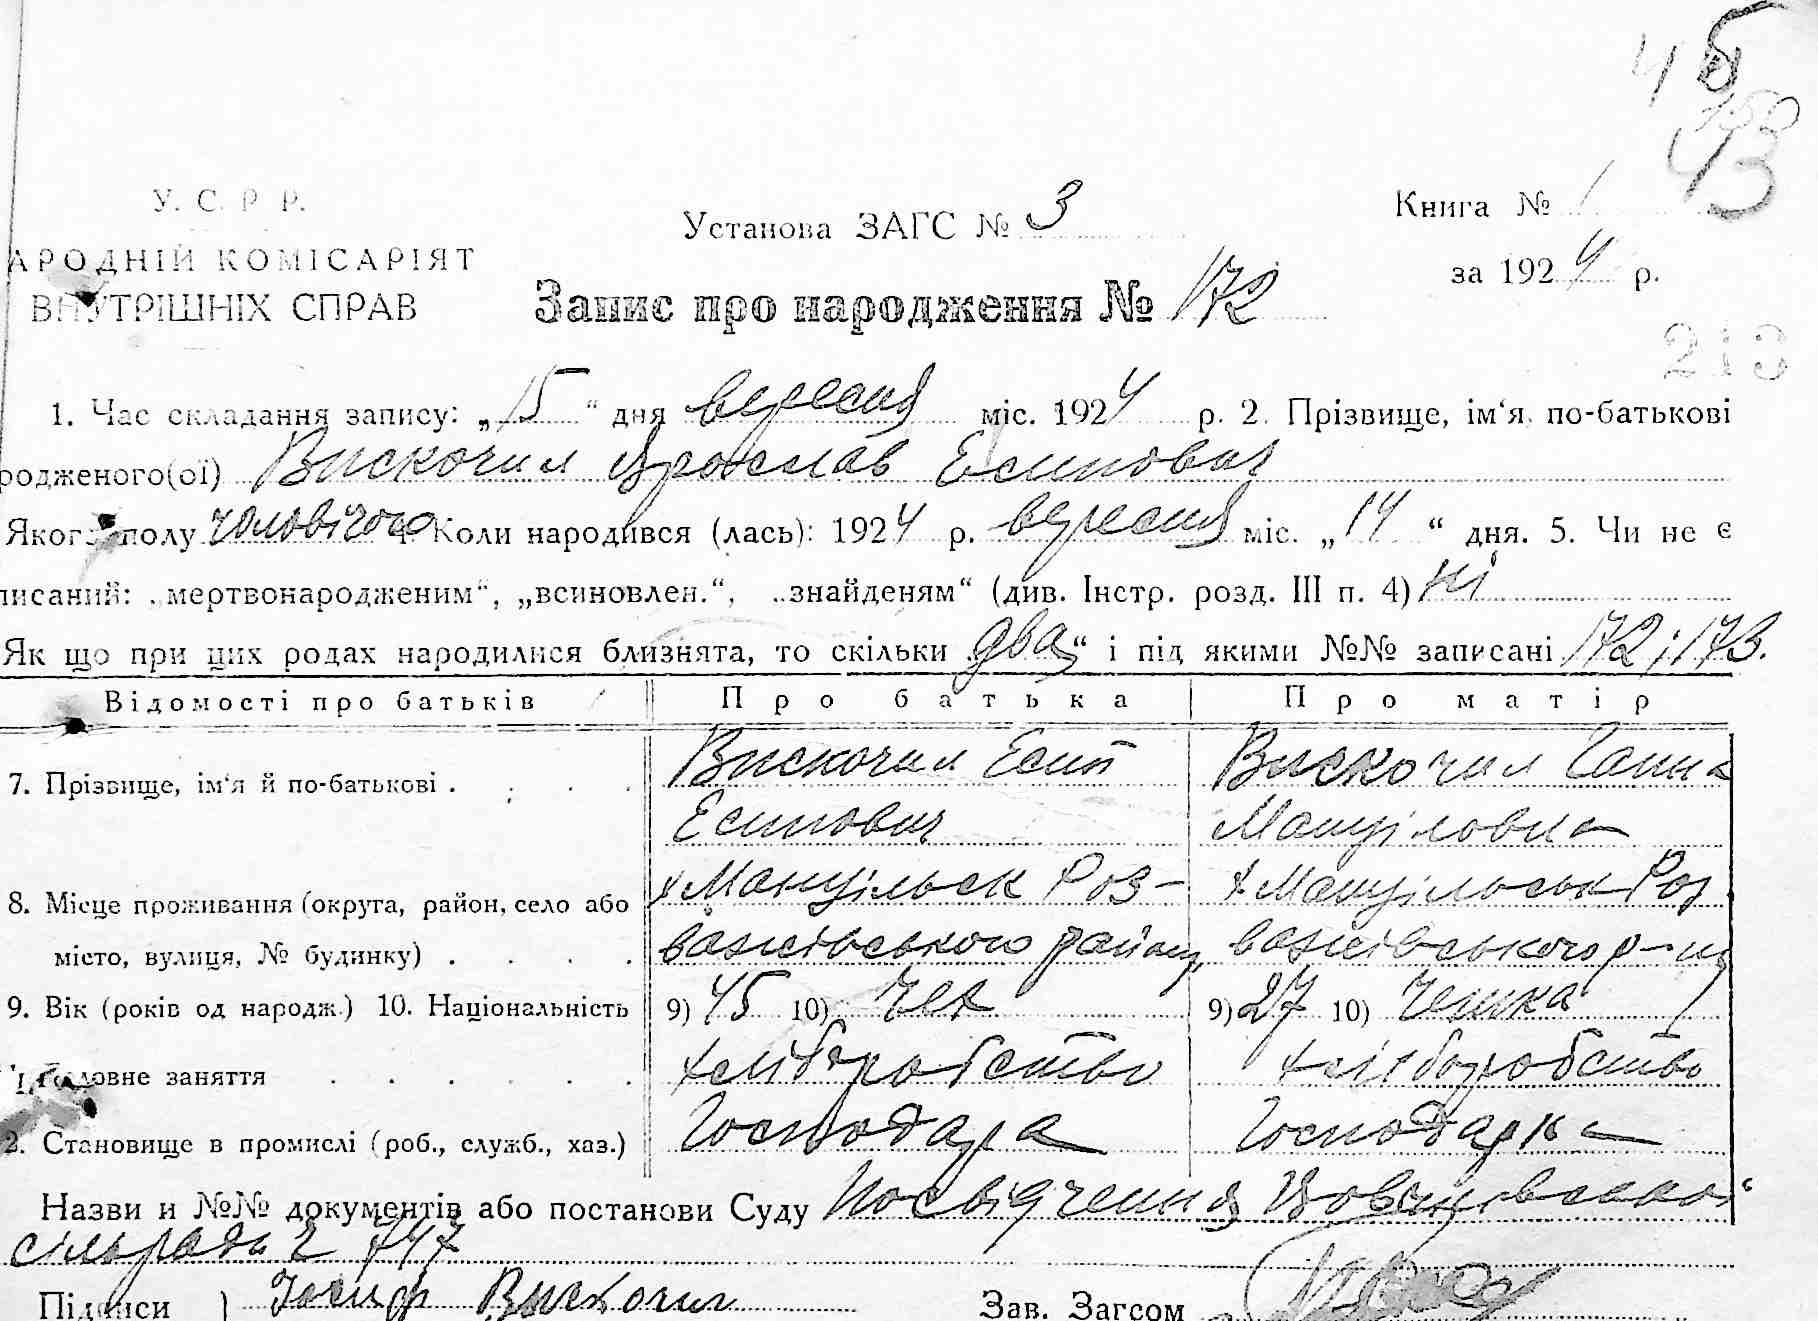 46
150
43
У. С. Р Р.
Установа ЗАГС № 3
Книга № 1
АРОДНІЙ КОМІСАРІЯТ
за 1924 р.
ВНУТРІШНІХ СПРАВ
Запис про народження № 172
213
1. Час складання запису: „15“ дня вересня міс. 1924 р. 2. Прізвище, ім‘я, по-батькові
родженого(ої) Вискочил Ярослав Есипович
Якого полу чоловічого 4. Коли народився (лась): 1924 р. вересня міс. „14“ дня. 5. Чи не є
писаний: „мертвонародженим“, „всиновлен.“, „знайденям“ (див. Інстр. розд. III п. 4) ні
Як що при цих родах народилися близнята, то скільки два“ і під якими №№ записані 172 і 173.
Відомості про батьків Про батька Про матір
7. Прізвище, ім‘я й по-батькові . . . . Вискочил Есип Вискочил Ганна
Есипович Мануіловна
8. Місце проживання (округа, район, село або х Мануільськ Роз- х Мануільськ Роз
місто, вулиця, № будинку) . . . . важівського району важівського р-ну
9. Вік (років од народж.) 10. Національність 9) 45 10) Чех 9) 27 10) Чешка
Головне заняття . . . . . . хліборобство хліборобство
2. Становище в промислі (роб., служб., хаз.) Господара Господарка
Назви и №№ документів або постанови Суду Посвідчення
сільради 747
Підписи } Иосиф Вискочил Зав. Загсом